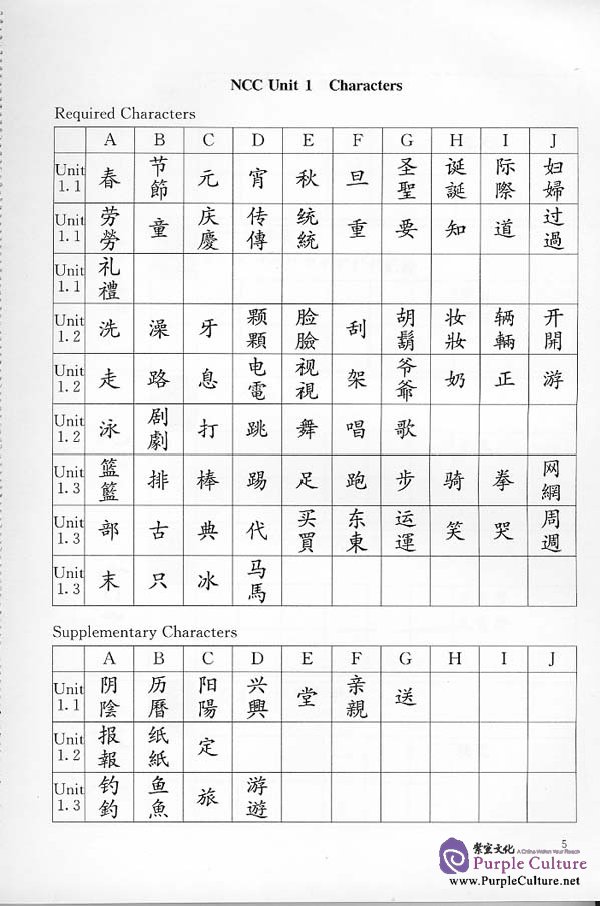 NCC Unit 1 Characters
Required Characters
A B C D E F G H I J
Unit 1. 1 春 节節 元 宵 秋 旦 圣聖 诞誕 际際 妇婦
Unit 1. 1 劳勞 童 庆慶 传傳 统統 重 要 知 道 过過
Unit 1. 1 礼禮
Unit 1. 2 洗 澡 牙 颗顆 脸臉 刮 胡鬍 妆妝 辆輛 开開
Unit 1. 2 走 路 息 电電 视視 架 爷爺 奶 正 游
Unit 1. 2 泳 剧劇 打 跳 舞 唱 歌
Unit 1. 3 篮籃 排 棒 踢 足 跑 步 骑 拳 网網
Unit 1. 3 部 古 典 代 买買 东東 运運 笑 哭 周週
Unit 1. 3 末 只 冰 马馬
Supplementary Characters
A B C D E F G H I J
Unit 1. 1 阴陰 历曆 阳陽 兴興 堂 亲親 送
Unit 1. 2 报報 纸紙 定
Unit 1. 3 钓釣 鱼魚 旅 游遊
5
紫宝文化 A China Within Your Reach
Purple Culture
www.PurpleCulture.net